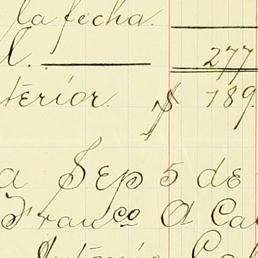 la fecha.
l. 277
terior. $ 189
a Sep 5 de
Franco A Ca
Antonio